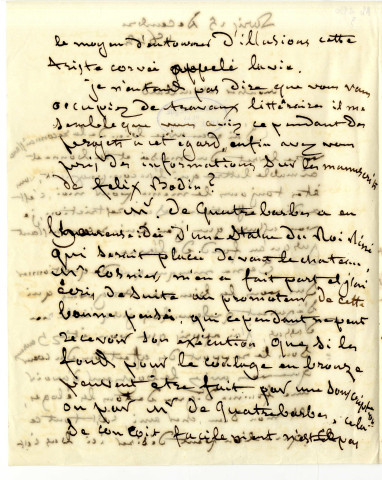 le moyen d'entourer d'illusions cette
triste corvée appelé la vie.
je n'entend pas dire que vous vous
occupiez de travaux littéraires il me
semble que vous aviez cependant des
projets à cet egard, enfin avez vous
pris des informations sur les manuscrits
de felix Bodin?
Mr. de Quatrebarbes a eu
l'heureuse idée d'une Statue du Roi René
qui serait placée devant le chateau,
Mr Cosnier m'en a fait part et j'ai
écris de suite au promoteur de cette
bonne pensée, qui cependant ne peut
recevoir son exécution que si les
fonds pour le coulage en bronze
peuvent être fait par une souscription
ou par Mr de Quatrebarbes, cela
se conçoit facilement n'est pas